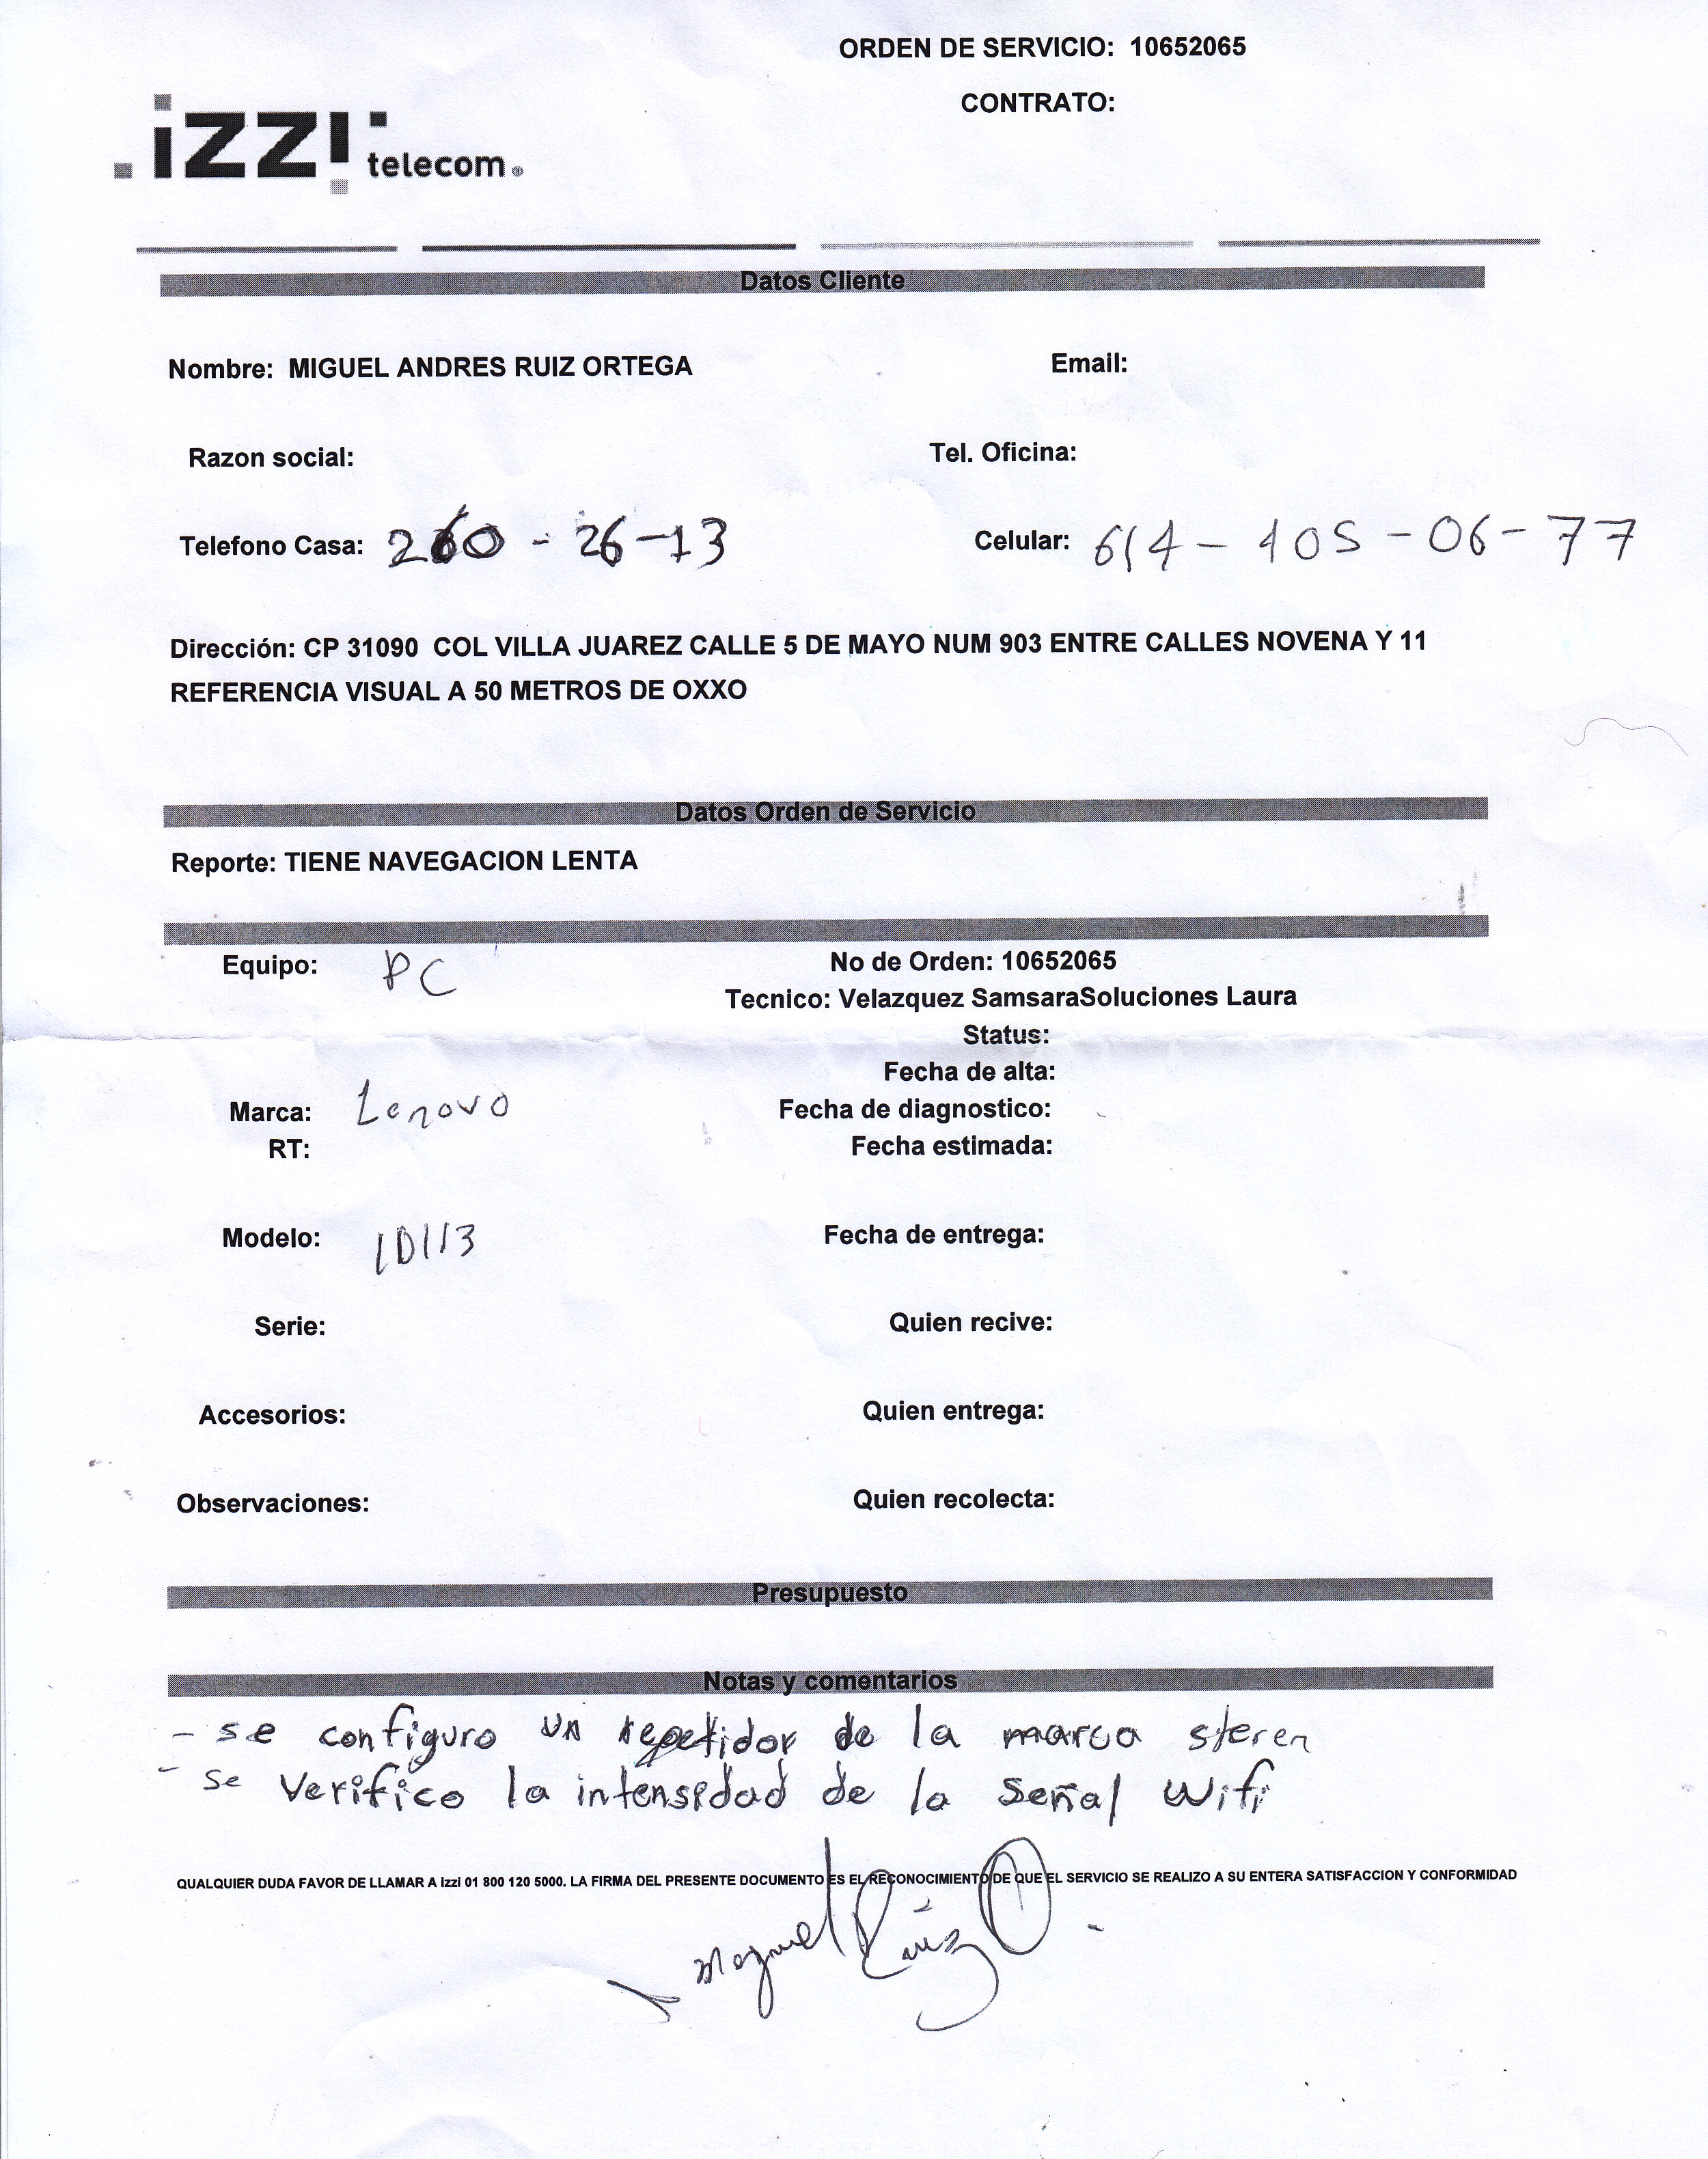 ORDEN DE SERVICIO: 10652065
CONTRATO:
izzi telecom
Datos Cliente
Nombre: MIGUEL ANDRES RUIZ ORTEGA Email:
Razon social: Tel. Oficina:
Telefono Casa: 260-26-13 Celular: 614-105-06-77
Dirección: CP 31090 COL VILLA JUAREZ CALLE 5 DE MAYO NUM 903 ENTRE CALLES NOVENA Y 11
REFERENCIA VISUAL A 50 METROS DE OXXO
Datos Orden de Servicio
Reporte: TIENE NAVEGACION LENTA
Equipo: PC No de Orden: 10652065
Tecnico: Velazquez SamsaraSoluciones Laura
Status:
Fecha de alta:
Marca: Lenovo Fecha de diagnostico:
RT: Fecha estimada:
Modelo: Fecha de entrega:
Serie: Quien recive:
Accesorios: Quien entrega:
Observaciones: Quien recolecta:
Presupuesto
Notas y comentarios
- se configuro un repetidor de la marca steren
- se verifico la intensidad de la señal wifi
QUALQUIER DUDA FAVOR DE LLAMAR A izzi 01 800 120 5000. LA FIRMA DEL PRESENTE DOCUMENTO ES EL RECONOCIMIENTO DE QUE EL SERVICIO SE REALIZO A SU ENTERA SATISFACCION Y CONFORMIDAD
Miguel Ruiz O